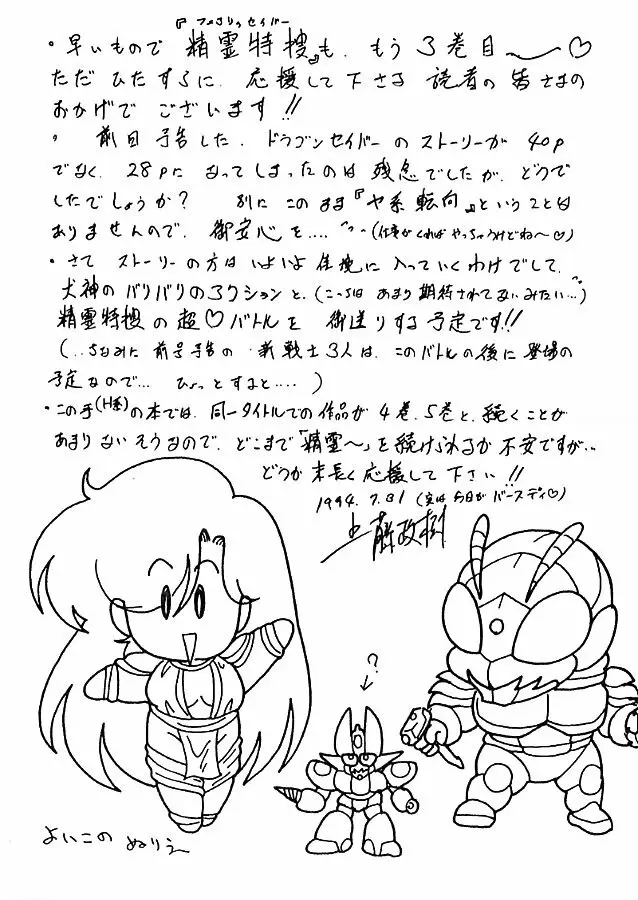 『フェアリィセイバー
・早いもので 精霊特捜』も、もう 3巻目〜〜♡
ただ ひたすらに、応援して下さる 読者の皆さまの
おかげで ございます!!
・ 前回 予告した、ドラゴンセイバーのストーリーが 40p
でなく、28pに なってしまったのは 残念でしたが、どうで
したでしょうか? 別に このまま『ヤ系転向』ということは
ありませんので、御安心を…… (仕事がくれば やっちゃうけどね〜♡)
・さて ストーリーの方は いよいよ 佳境に 入っていくわけでして、
犬神のバリバリのアクションと、(こっちは あまり期待されてないみたい…)
精霊特捜の超♡バトルを 御送りする予定です!!
(…ちなみに 前号予告の 新戦士3人は、このバトルの後に登場の
予定なので… ひょっとすると…… )
・この手(H系)の本では、同一タイトルでの作品が 4巻、5巻と、続くことが
あまりないそうなので、どこまで「精霊〜」を続けられるか 不安ですが…
どうか 末長く応援して下さい!!
1994.7.31 (実は 今日が バースディ♡)
上藤政樹
?
よいこの ぬりえ